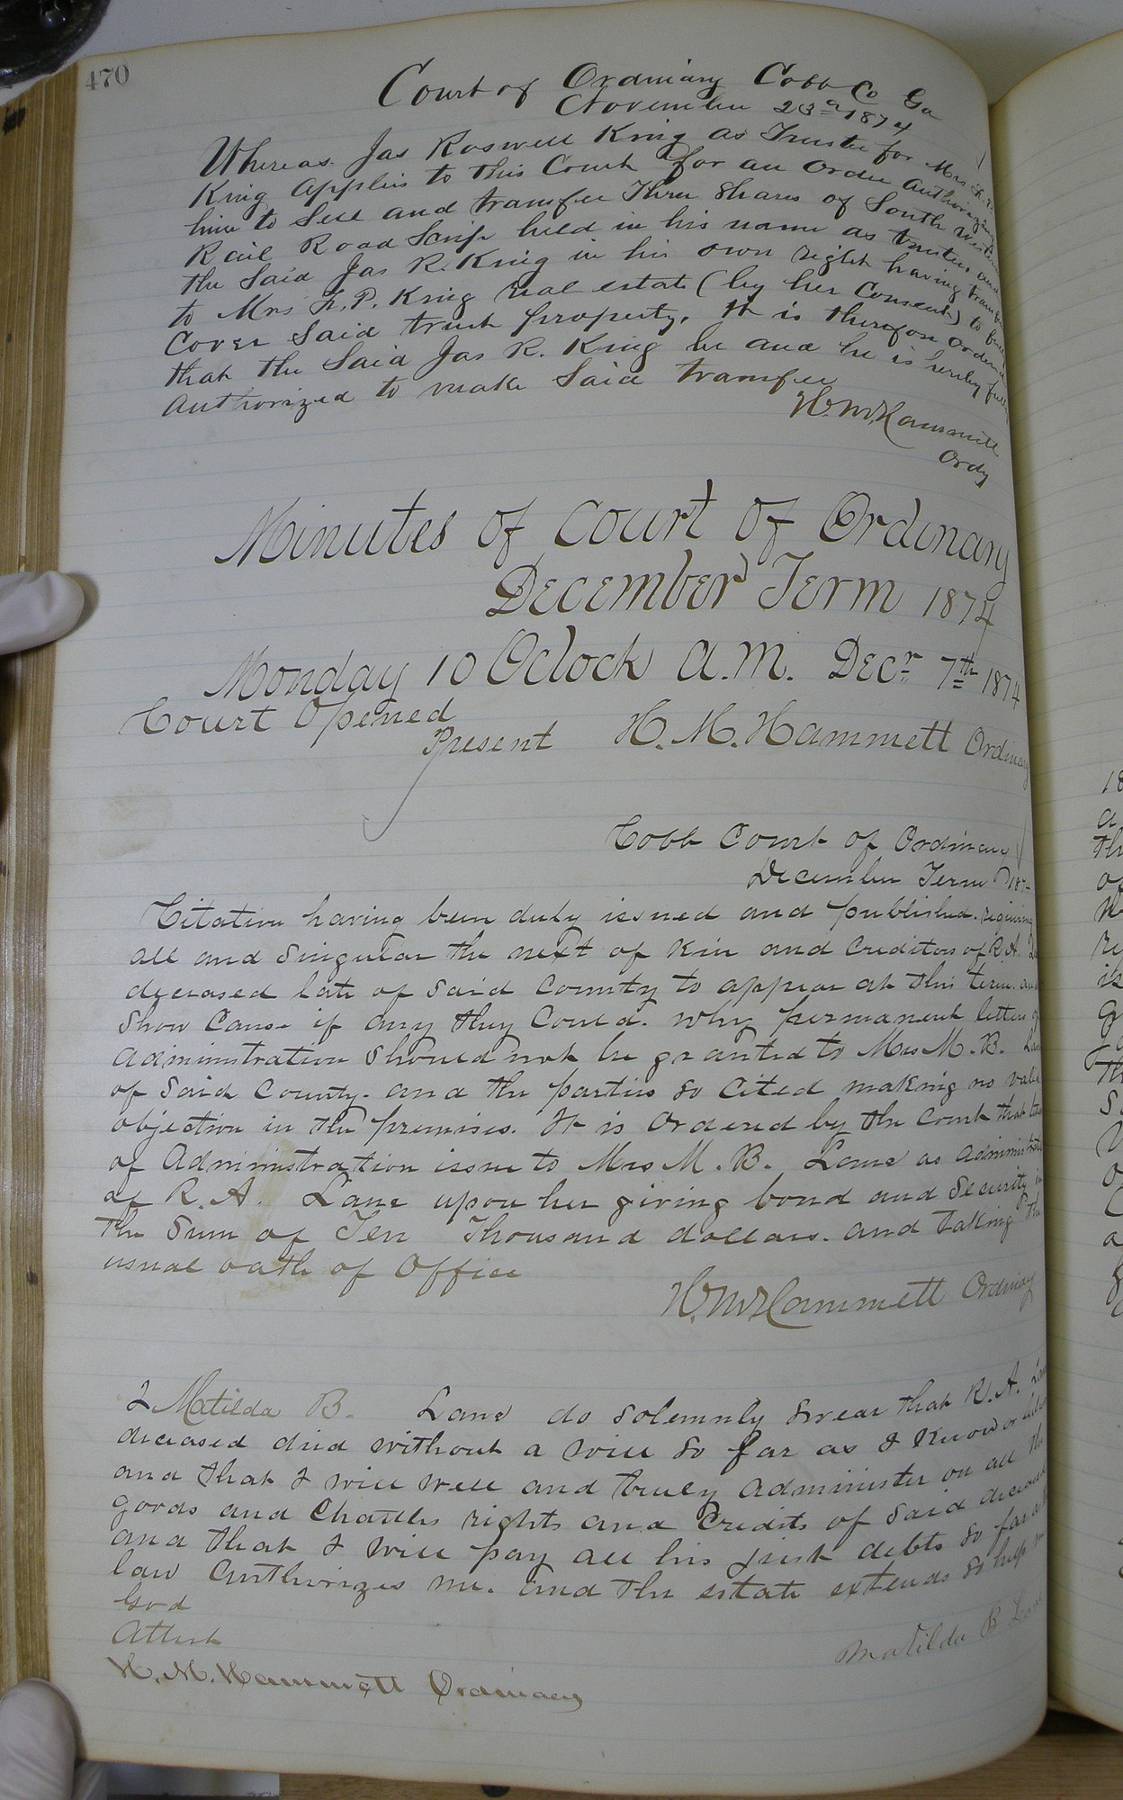 470
Court of Ordinary Cobb Co Ga
November 23d 1874
Whereas Jas Roswell King as Trustee for Mrs
King applies to this Court for an order authorizing
him to Sell and transfer Three Shares of South Western
Rail Road Scrip held in his name as trustee and
the Said Jas R. King in his own right having
to Mrs F. P. King real estate (by her Consent) to
Cover Said trust property. It is therefore Ordered
that the Said Jas R. King be and he is hereby fully
Authorized to make Said transfer
H. M. Hammett
Ordy
Minutes of Court of Ordinary
December Term 1874
Monday 10 Oclock A.M. Decr 7th 1874
Court Opened
Present H. M. Hammett Ordinary
Cobb Court of Ordinary
December Term 187
Citation having been duly issued and published requiring
all and Singular the next of Kin and Creditors of R. A.
deceased late of Said County to appear at this term and
Show Cause if any they Could. why permanent letters of
administration Should not be granted to Mrs M. B. Lane
of Said County. and the parties so Cited making no valid
objection in the premises. It is Ordered by the Court that
of Administration issue to Mrs M. B. Lane as administratrix
of R. A. Lane upon her giving bond and Security in
the Sum of Ten Thousand dollars. and taking the
usual oath of Office
H. M. Hammett Ordinary
I Matilda B. Lane do solemnly Swear that R. A. Lane
deceased died without a will so far as I know or believe
and that I will well and truly administer on all the
goods and Chattles rights and Credits of Said deceased
and that I will pay all his just debts so far as
law Authorizes me. and the estate extends So help me
God
Attest
Matilda B Lane
H. M. Hammett Ordinary